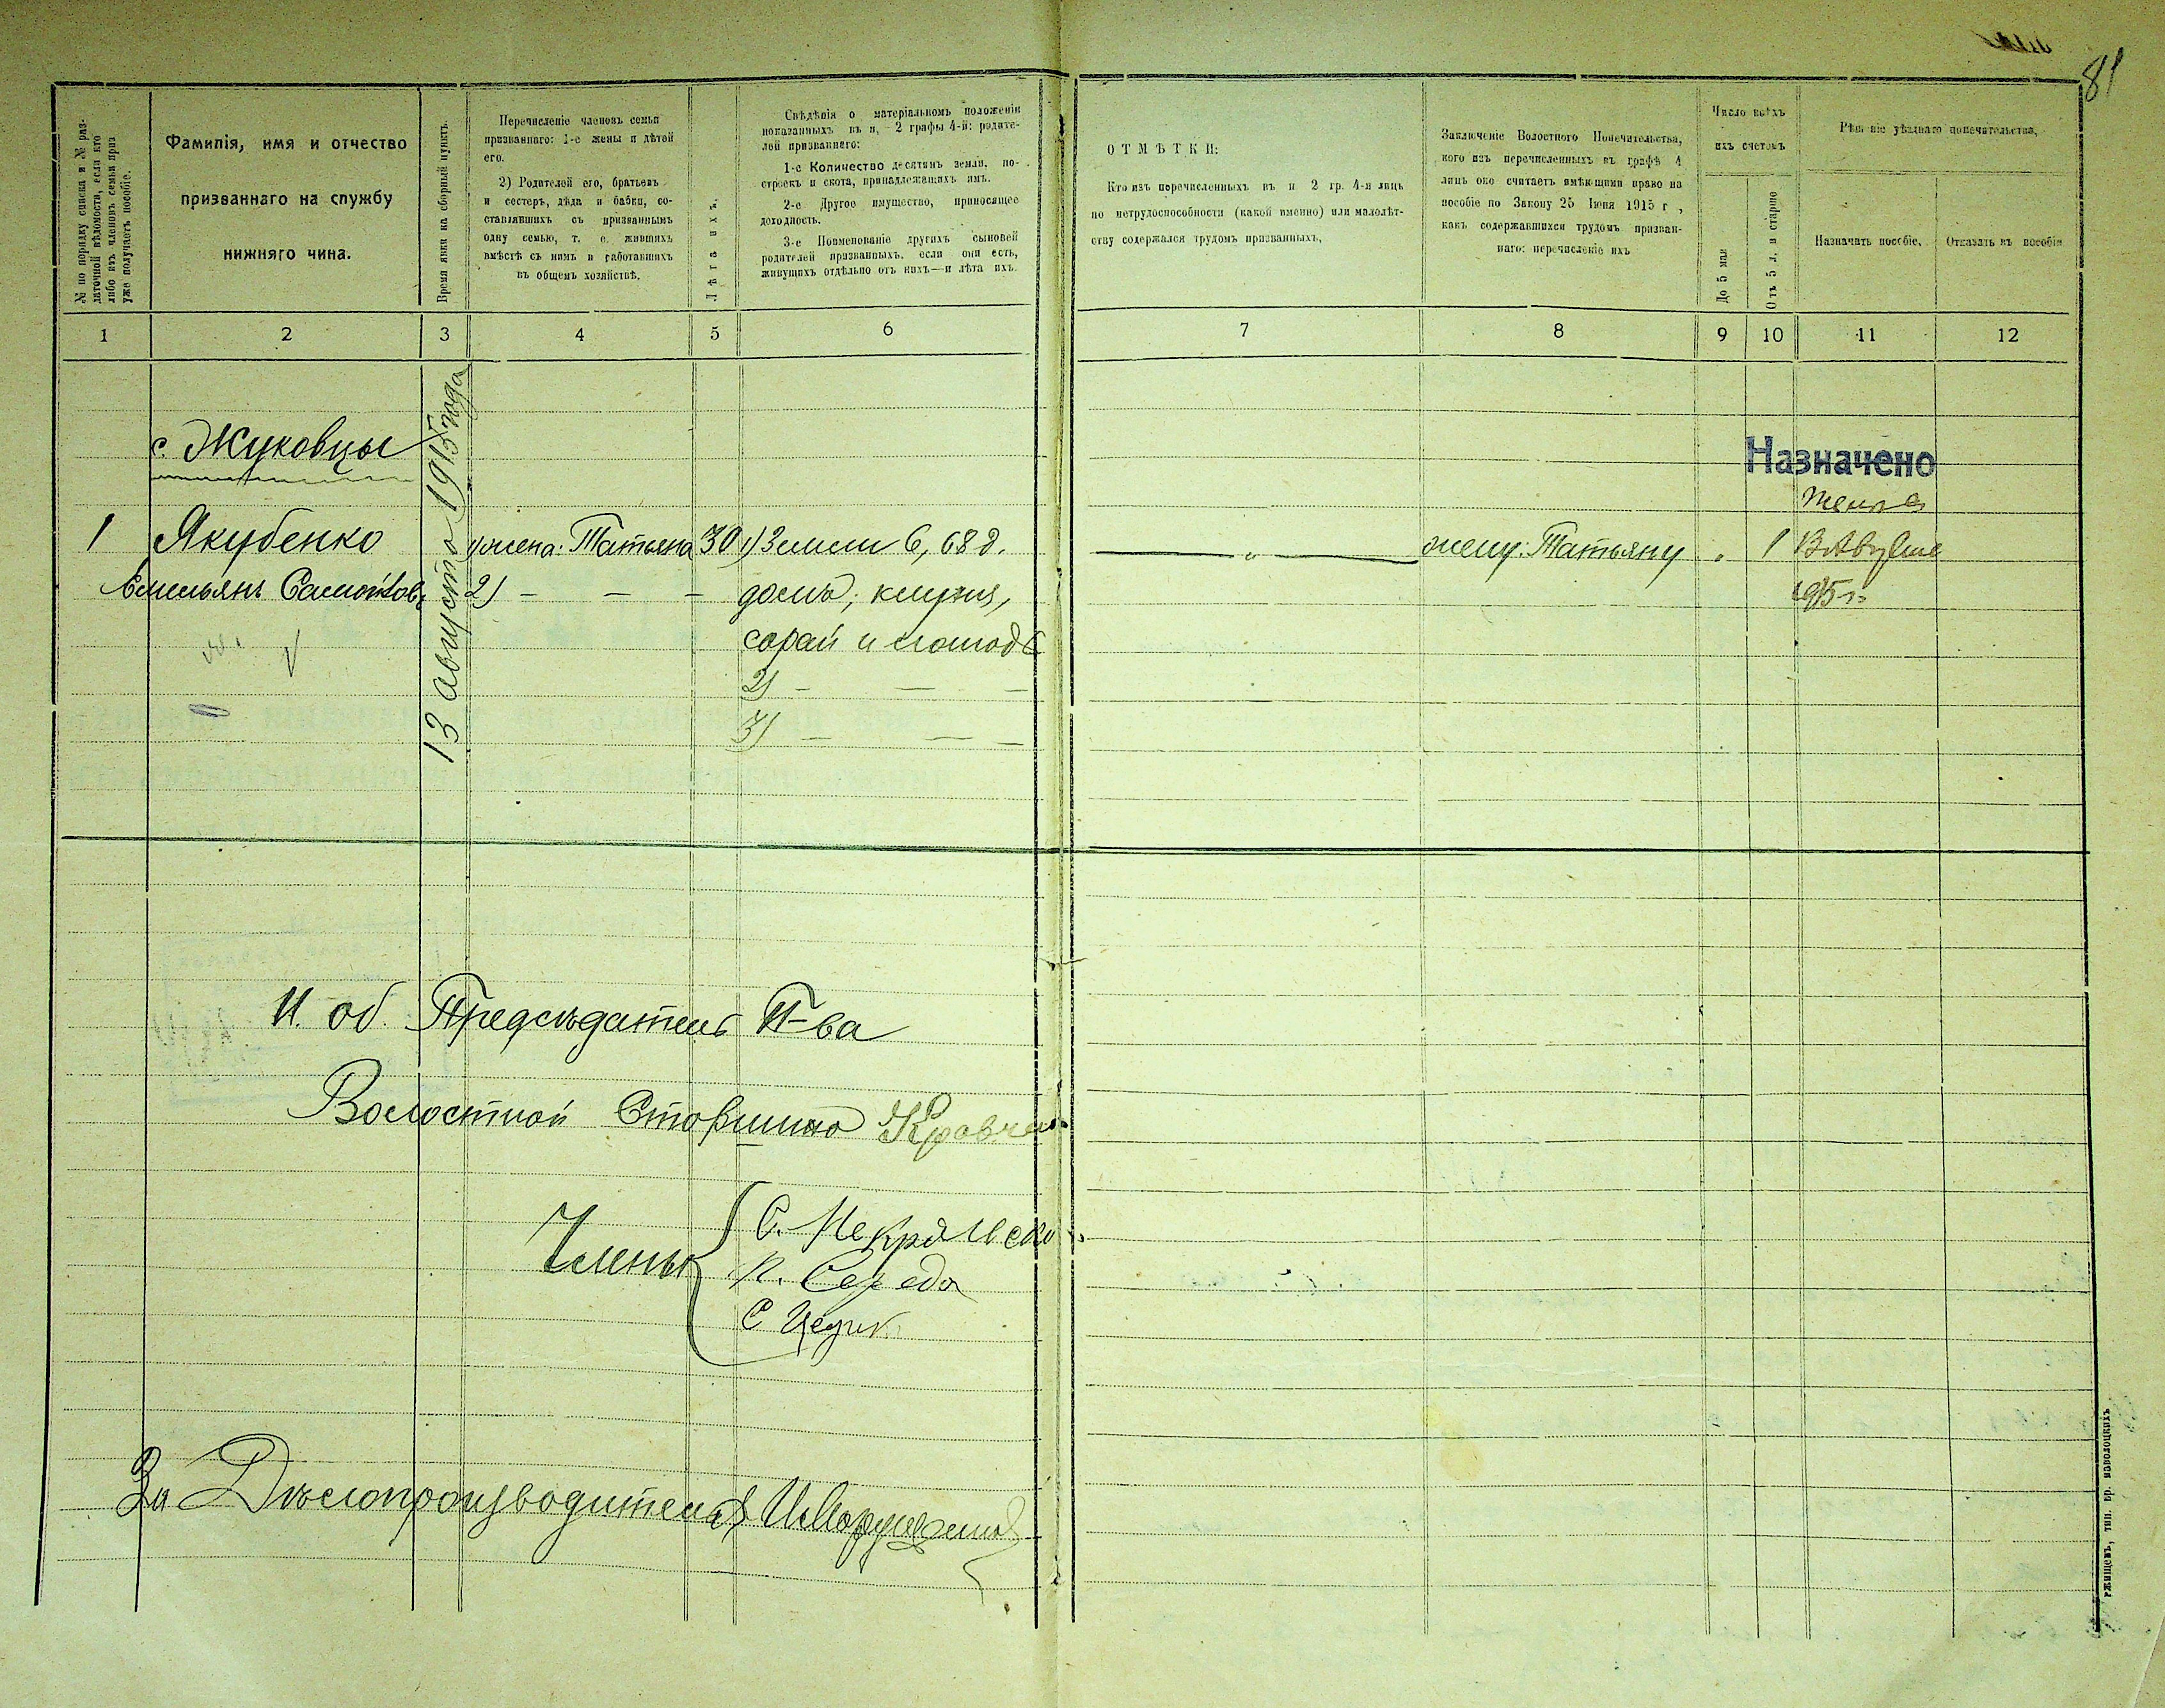 81
№ по порядку списка и № раз-
даточной вѣдомости, если кто
либо изъ членовъ семьи приз
уже получаетъ пособіе.
Фамилія, имя и отчество
призваннаго на службу
нижняго чина.
Время явки на сборный пунктъ.
Перечисленіе членовъ семьи
призваннаго: 1-е жены и дѣтей
его.
2) Родителей его, братьевъ
и сестеръ, дѣда и бабки, со-
ставлявшихъ съ призваннымъ
одну семью, т. е. жившихъ
вмѣстѣ съ нимъ и работавшихъ
въ общемъ хозяйствѣ.
Лѣта ихъ.
Свѣдѣнія о матеріальномъ положеніи
показанныхъ въ п. 2 графы 4-й: родите-
лей призваннаго:
1-е Количество десятинъ земли, по-
строекъ и скота, принадлежащихъ имъ.
2-е Другое имущество, приносящее
доходность.
3-е Поименованіе другихъ сыновей
родителей призванныхъ, если они есть,
живущихъ отдѣльно отъ нихъ—и лѣта ихъ.
ОТМѢТКИ:
Кто изъ перечисленныхъ въ п 2 гр. 4-я лицъ
по нетрудоспособности (какой именно) или малолѣт-
ству содержался трудомъ призванныхъ,
Заключеніе Волостного Попечительства,
кого изъ перечисленныхъ въ графѣ 4
лицъ оно считаетъ имѣющими право на
пособіе по Закону 25 Іюня 1915 г ,
какъ содержавшихся трудомъ призван-
наго: перечисленіе ихъ
Число всѣхъ
ихъ счетомъ
До 5 мал
Отъ 5 л. и старше
Рѣшеніе уѣзднаго попечительства,
Назначить пособіе,
Отказать въ пособіи
1 2 3 4 5 6 7 8 9 10 11 12
с. Жуковцы
13 августа 1915 года
Назначено
жена
1 Якубенко 1) жена: Татьяна 30 1) Земли 6,68 д. — „ — жену: Татьяну „ 1 13 Августа
Емельянъ 2) — — — домъ, клуня, 1915 г.
сарай и лошадь
2) — — —
3) — — —
И. об. Предсѣдатель П-ва
Волостной Старшина Кравчен
Члены
С. Некра
К. Середа
С
За Дѣлопроизводителя
ржищевъ, тип. бр. изволоцкихъ